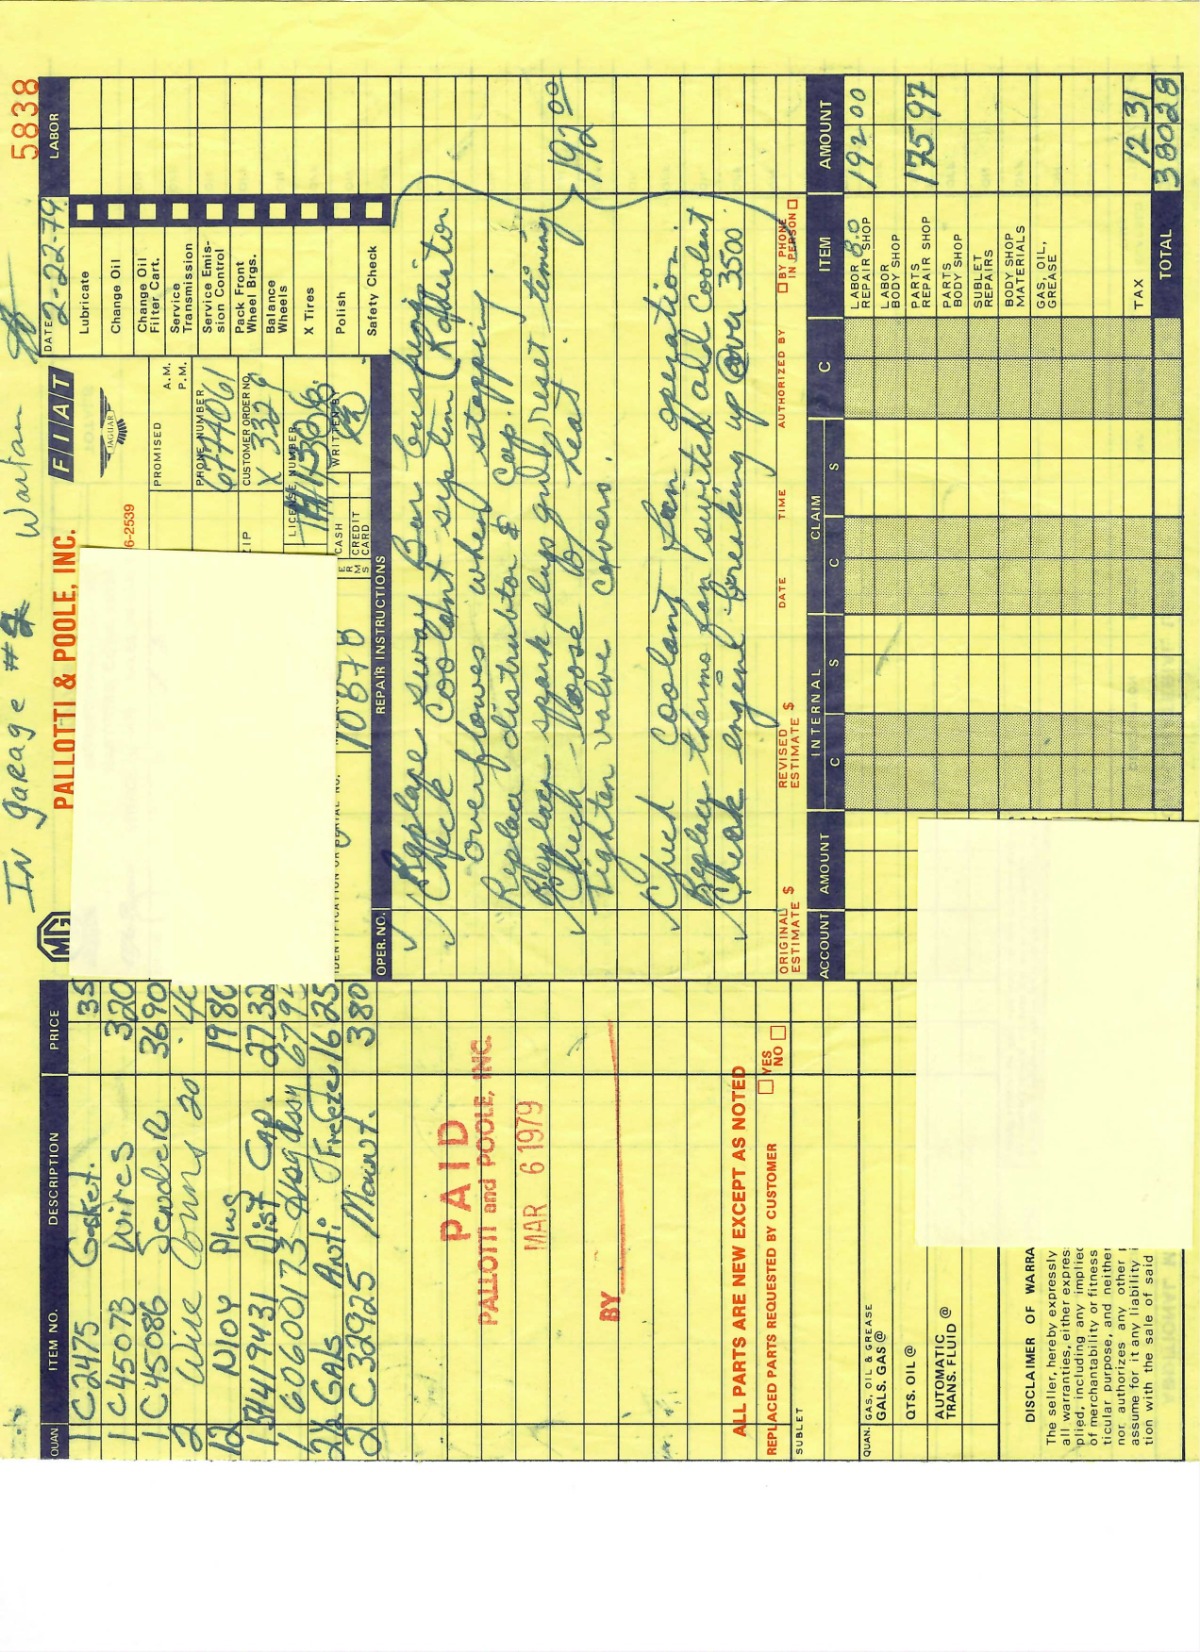 In Garage #2 Wartan
5838
MG
PALLOTTI & POOLE, INC.
FIAT
JAGUAR
6-2539
DATE 2-22-79
LABOR
Lubricate
Change Oil
Change Oil Filter Cart.
Service Transmission
Service Emis-
sion Control
Pack Front Wheel Brgs.
Balance Wheels
X Tires
Polish
Safety Check
PROMISED A.M. P.M.
PHONE NUMBER
CUSTOMER ORDER NO.
X 3326
ZIP
LICENSE NUMBER
WRITTEN BY
CASH
CREDIT CARD
IDENTIFICATION OR SERIAL NO.
10878
QUAN. ITEM NO. DESCRIPTION PRICE
1 C2475 Gasket. 35
1 C45073 Wires 320
1 C45086 Sender 3690
2 Wire Conns 20 .40
12 N10Y Plugs 1980
1 34419431 Dist Cap. 2732
1 60600173 Hsg Assy 679
2½ GALs Anti Freeze 1625
2 C32925 Mount. 380
OPER. NO. REPAIR INSTRUCTIONS
Replace sway Bar bushings
Check Coolant system (Radiator
overflowes when stopping
Replace distrubtor & Cap.
Replace spark plugs and reset timeing
Check loose heat
tighten valve covers.
192.00
Check coolant fan operation.
Replace thermo fan switch add Coolant
Check engine breaking up @ over 3500
ORIGINAL ESTIMATE $
REVISED ESTIMATE $
DATE
TIME
AUTHORIZED BY
BY PHONE
IN PERSON
PAID
PALLOTTI and POOLE, INC.
MAR 6 1979
BY
ALL PARTS ARE NEW EXCEPT AS NOTED
REPLACED PARTS REQUESTED BY CUSTOMER YES NO
SUBLET
QUAN. GAS, OIL & GREASE
GALS. GAS @
QTS. OIL @
AUTOMATIC TRANS. FLUID @
ACCOUNT AMOUNT INTERNAL CLAIM C ITEM AMOUNT
C S C S
LABOR REPAIR SHOP 8.0 192 00
LABOR BODY SHOP
PARTS REPAIR SHOP 175 97
PARTS BODY SHOP
SUBLET REPAIRS
BODY SHOP MATERIALS
GAS, OIL, GREASE
TAX 12 31
TOTAL 380 28
DISCLAIMER OF WARRA
The seller, hereby expressly
all warranties, either expres
plied, including any implied
of merchantability or fitness
ticular purpose, and neither
nor authorizes any other p
assume for it any liability i
tion with the sale of said